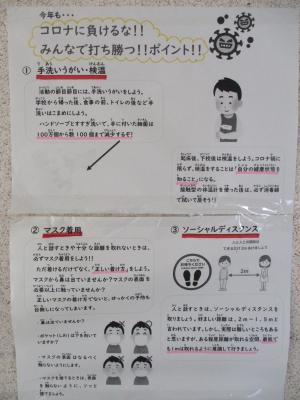 今年も・・・
コロナに負けるな!!
みんなで打ち勝つ!!ポイント!!
① 手洗いうがい・検温
活動の節目節目には、手洗いうがいをしよう。
学校から帰った後、食事の前、トイレの後など手
洗いはこまめにしよう。
ハンドソープとすすぎ洗いで、手に付いた細菌は
100万個から数100個まで減少するぞ!
起床後、下校後は検温をしよう。コロナ禍に
限らず、検温をすることは「自分の健康状態を
知ること」になる。
接触型の体温計を使った後は、必ず消毒綿
で拭いて戻そう!!
② マスク着用
人と話すときや十分な距離を取れないときは、
必ずマスク着用をしよう!!
ただ着けるだけでなく、「正しい着け方」をしよう。
マスクから鼻は出ていませんか?マスクの表面を
必要以上に触っていませんか?
正しいマスクの着け方でないと、せっかくの予防も
台無しになってしまいます。
・鼻は出ていませんか?
・マスクの表面はなるべく
触らないようにします。
・マスクを捨てるときは、表面
を触らないように、
捨てましょう。
③ ソーシャルディスタンス
2m
人と話すときは、ソーシャルディスタンスを
取りましょう。好ましい距離は、2m~1.5mと
言われています。しかし、実際は難しいところもある
と思いますが、ある程度距離が取れる空間、最低で
も1mは取れるように意識して行きましょう。